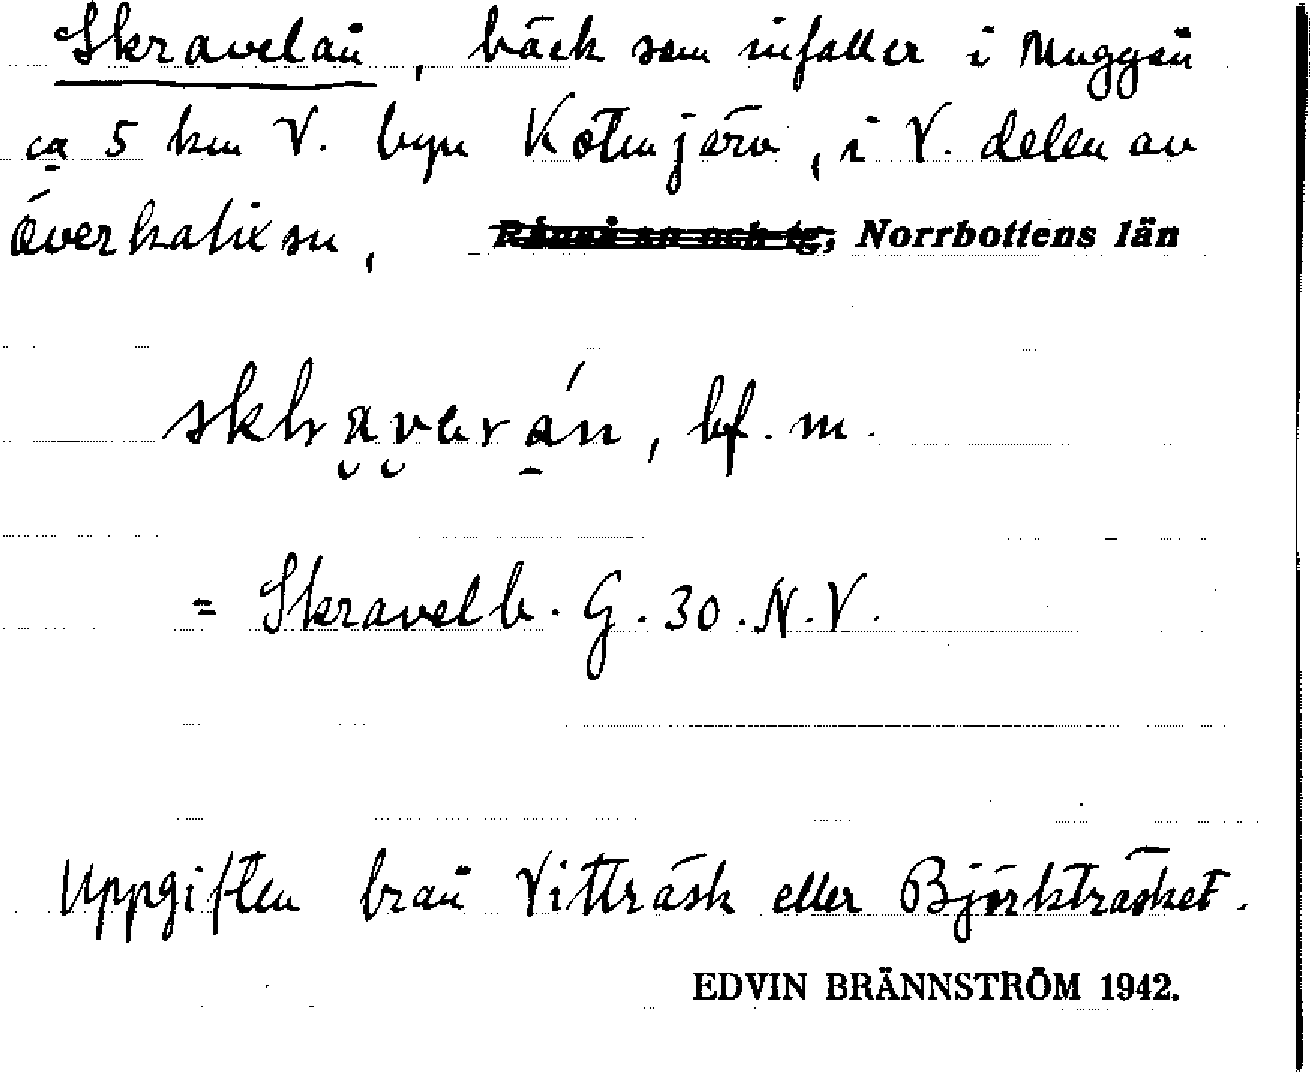 Skravelån, bäck som infaller i Muggån
ca 5 km V. byn Kölmjärv, i V. delen av
överkalix sn, Råneå sn och tg, Norrbottens län
bf. m.
= Skravelb. G. 30. N.V.
Uppgiften från Vitträsk eller Björkträsket.
EDVIN BRÄNNSTRÖM 1942.